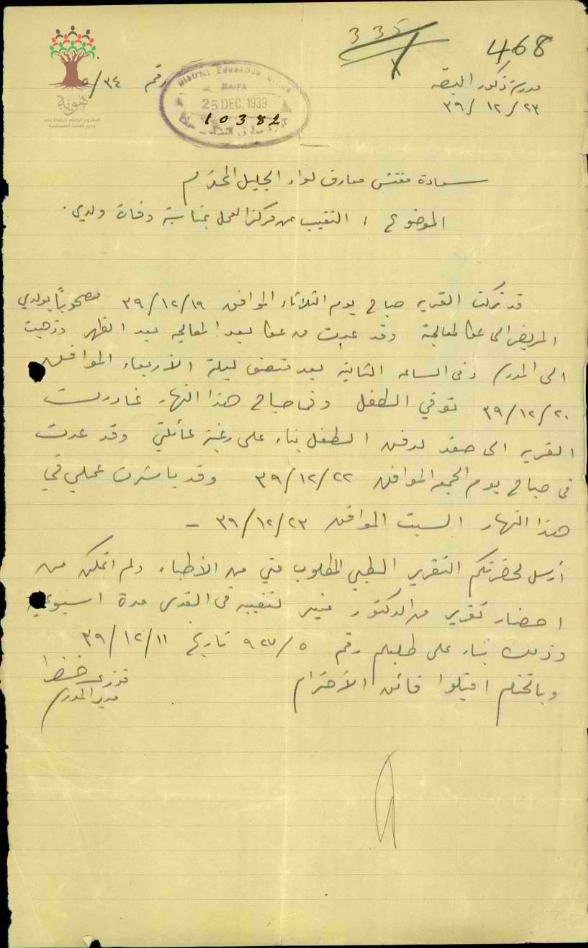 335
468
مدرسة ذكور البقيعة
٢٣/١٢/٣٩
رقم ٥/٣٤
District Education Office
HAIFA
25 DEC. 1939
10382
هوية
سعادة مفتش معارف لواء الجليل المحترم
الموضوع: التغيب عن مركز العمل بمناسبة وفاة ولدي.
قد تركت القرية صباح يوم الثلاثاء الموافق ١٩/١٢/٣٩ مصحوباً بولدي
المريض الى عكا لمعالجة وقد عدت من عكا بعد المعالجة بعد الظهر وذهبت
الى المدرسة وفي الساعة الثانية بعد منتصف ليلة الأربعاء الموافق
٢٠/١٢/٣٩ توفي الطفل وفي صباح هذا النهار غادرت
القرية الى صفد لدفن الطفل بناء على رغبة عائلتي وقد عدت
في صباح يوم الجمعة الموافق ٢٢/١٢/٣٩ وقد باشرت عملي في
هذا النهار السبت الموافق ٢٣/١٢/٣٩ –
أرسل لحضرتكم التقرير الطبي المطلوب مني من الأطباء ولم أتمكن من
احضار تقرير من الدكتور منير لتغيبه في القدس مدة اسبوعين
وذلك بناء على طلبكم رقم ٩٢٧/٥ تاريخ ١١/١٢/٣٩
وبالختام اقبلوا فائق الأحترام
فوزي خضرا
مدير المدرسة